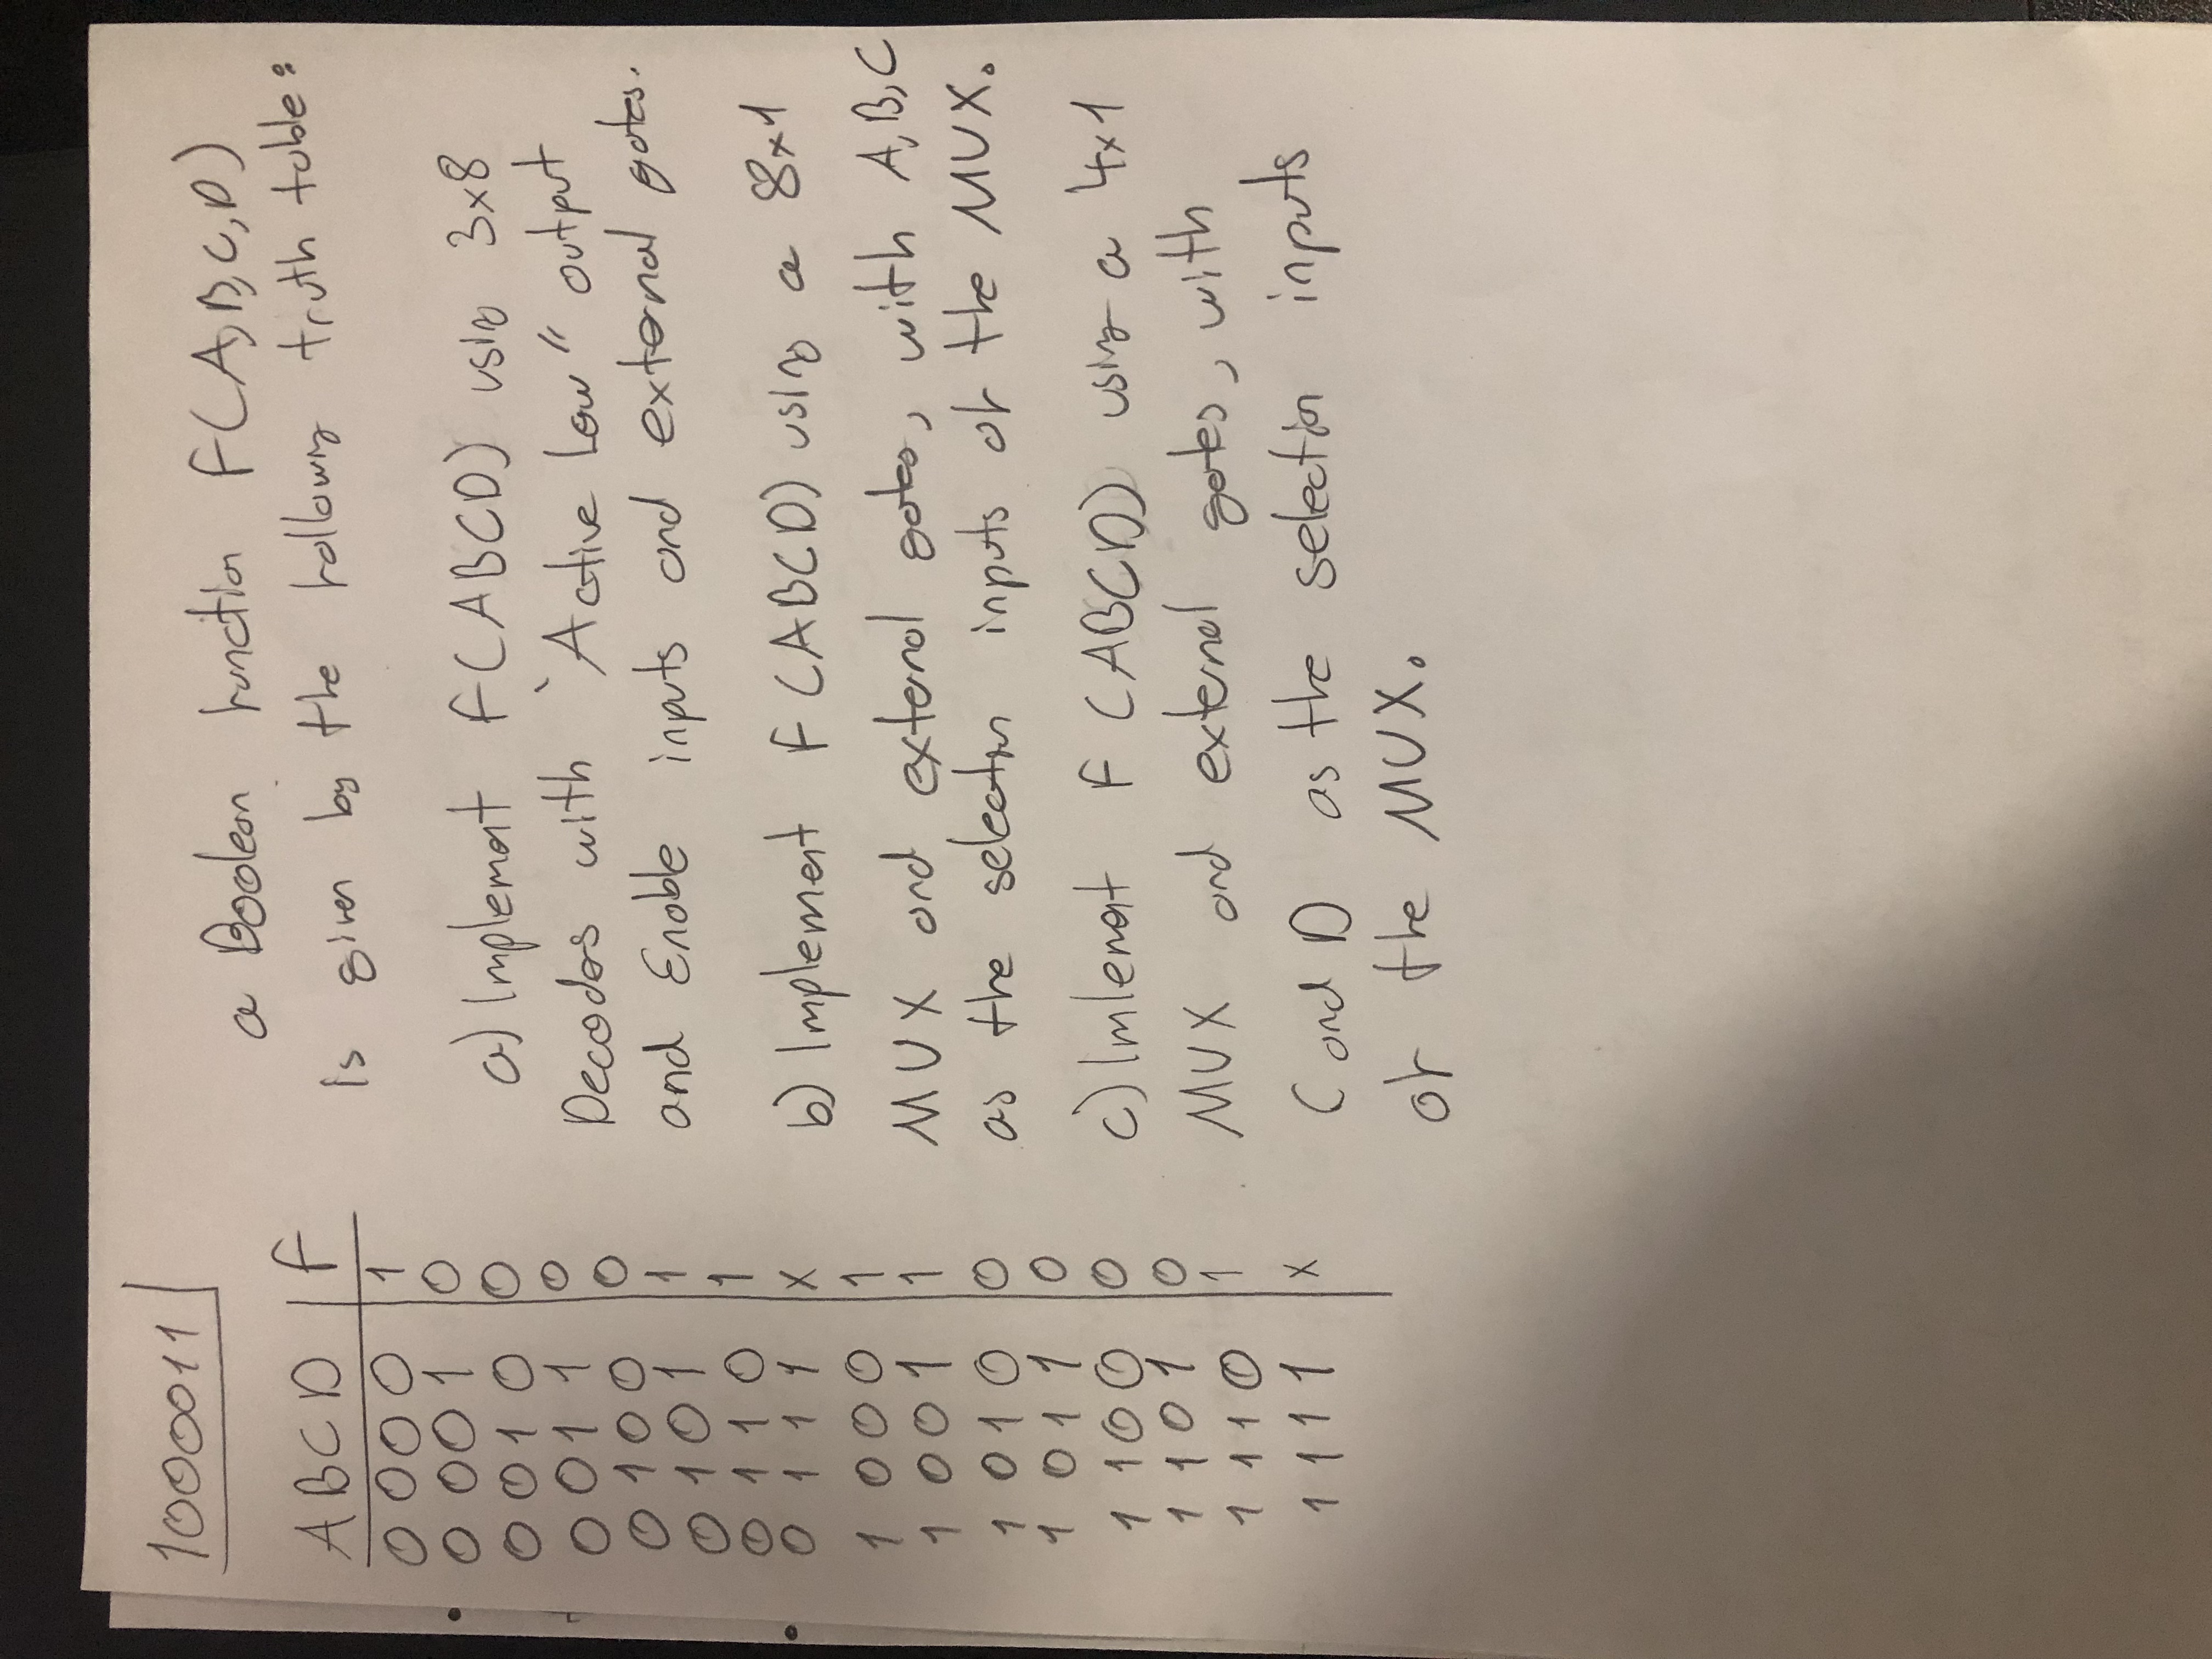 1000011
A B C D F
0 0 0 0 1
0 0 0 1 0
0 0 1 0 0
0 0 1 1 0
0 1 0 0 0
0 1 0 1 1
0 1 1 0 1
0 1 1 1 x
1 0 0 0 1
1 0 0 1 1
1 0 1 0 0
1 0 1 1 0
1 1 0 0 0
1 1 0 1 0
1 1 1 0 1
1 1 1 1 x
a Boolean function F(A,B,C,D)
Is given by the following truth table:
a) Implement F(ABCD) using 3x8
Decodes with "Active Low" output
and Enable inputs and external gates.
b) Implement F(ABCD) using a 8x1
MUX and external gates, with A,B,C
as the selection inputs of the MUX.
c) Imlement F(ABCD) using a 4x1
MUX and external gates, with
C and D as the selection inputs
of the MUX.